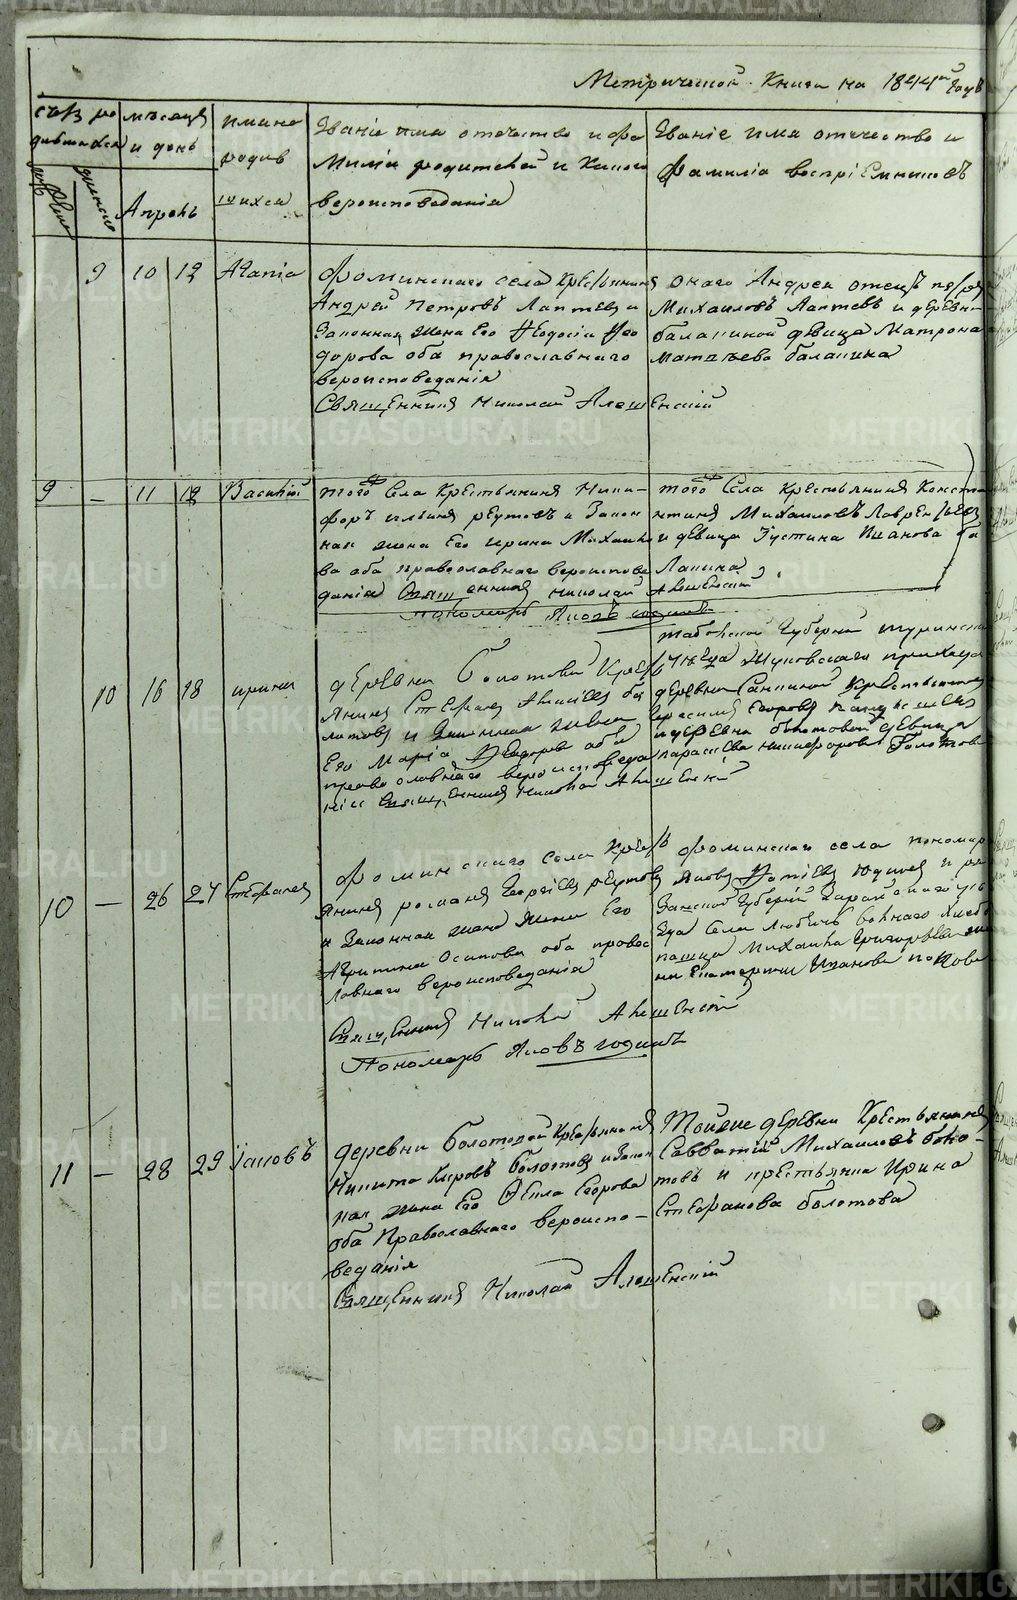 Метрической Книги на 1844й годъ
счетъ ро
дившихся
мѣсяцъ
и день
имина
родив
шихся
Званіе имя отечество и фа
милія родителей и какого
вероисповеданія
Званіе имя отечество и
Фамилія воспріемниковъ
женск
Апрель
9 10 12 Агапіа
Фоминскаго села Крестьянинъ
Андрей Петровъ Лаптевъ и
Законная жена Его Ѳеодосіа Ѳео
дорова оба православнаго
вероисповеданія
Священникъ Николай Алешенскій
онаго Андрея отецъ
Михаиловъ Лаптевъ и деревни
балакиной девица Матрона
Матвѣева балакина
9 – 11 12 Василій
того Села Крестьянинъ Ники-
форъ ильинъ реутовъ и Закон
ная жена Его ирина Михаило
ва оба православнаго вероиспове
данія Священникъ Николай Алешенскій
Пономарь Яковъ
того Села Крестьянинъ Конста
нтинъ Михаиловъ Лаврентьевъ
и девица Устина Иванова ба
лакина
10 16 18 ирина
деревни Болотовой Крест
янинъ Стефанъ бо
лотовъ и Законная жена
Его Маріа Ѳеодор оба
православнаго вероисповеда
нія Священникъ Николай Алешенскій
Табольской Губерніи туринска
уѣзда Жуковскаго прихода
деревни
Егоровъ
и деревни болотовой девица
параскева никифорова болотова
10 – 26 27 Стефанъ
Фоминскаго села Крест
янинъ романъ Георгіевъ реутовъ
и Законная жена Его
Агрипина Осипова оба правос
лавнаго вероисповеданія
Священникъ Николай Алешенскій
Пономарь Яковъ
Фоминскаго села пономарь
Яковъ и ря
занской Губерніи Зарайскаго уѣ
зда Села Любичь
пашца Михаила Григорьева же
на Екатерина Иванова
11 – 28 29 Іаковъ
деревни болотовой Крестьянинъ
Никита Кировъ болотовъ и Закон
ная жена Его Ѳекла Егорова
оба Православнаго вероиспо-
веданія
Священникъ Николай Алешенскій
Тойже деревни Крестьянинъ
Савватій Михаиловъ боло-
товъ и крестьянка Ирина
Стефанова болотова
METRIKI.GASO-URAL.RU